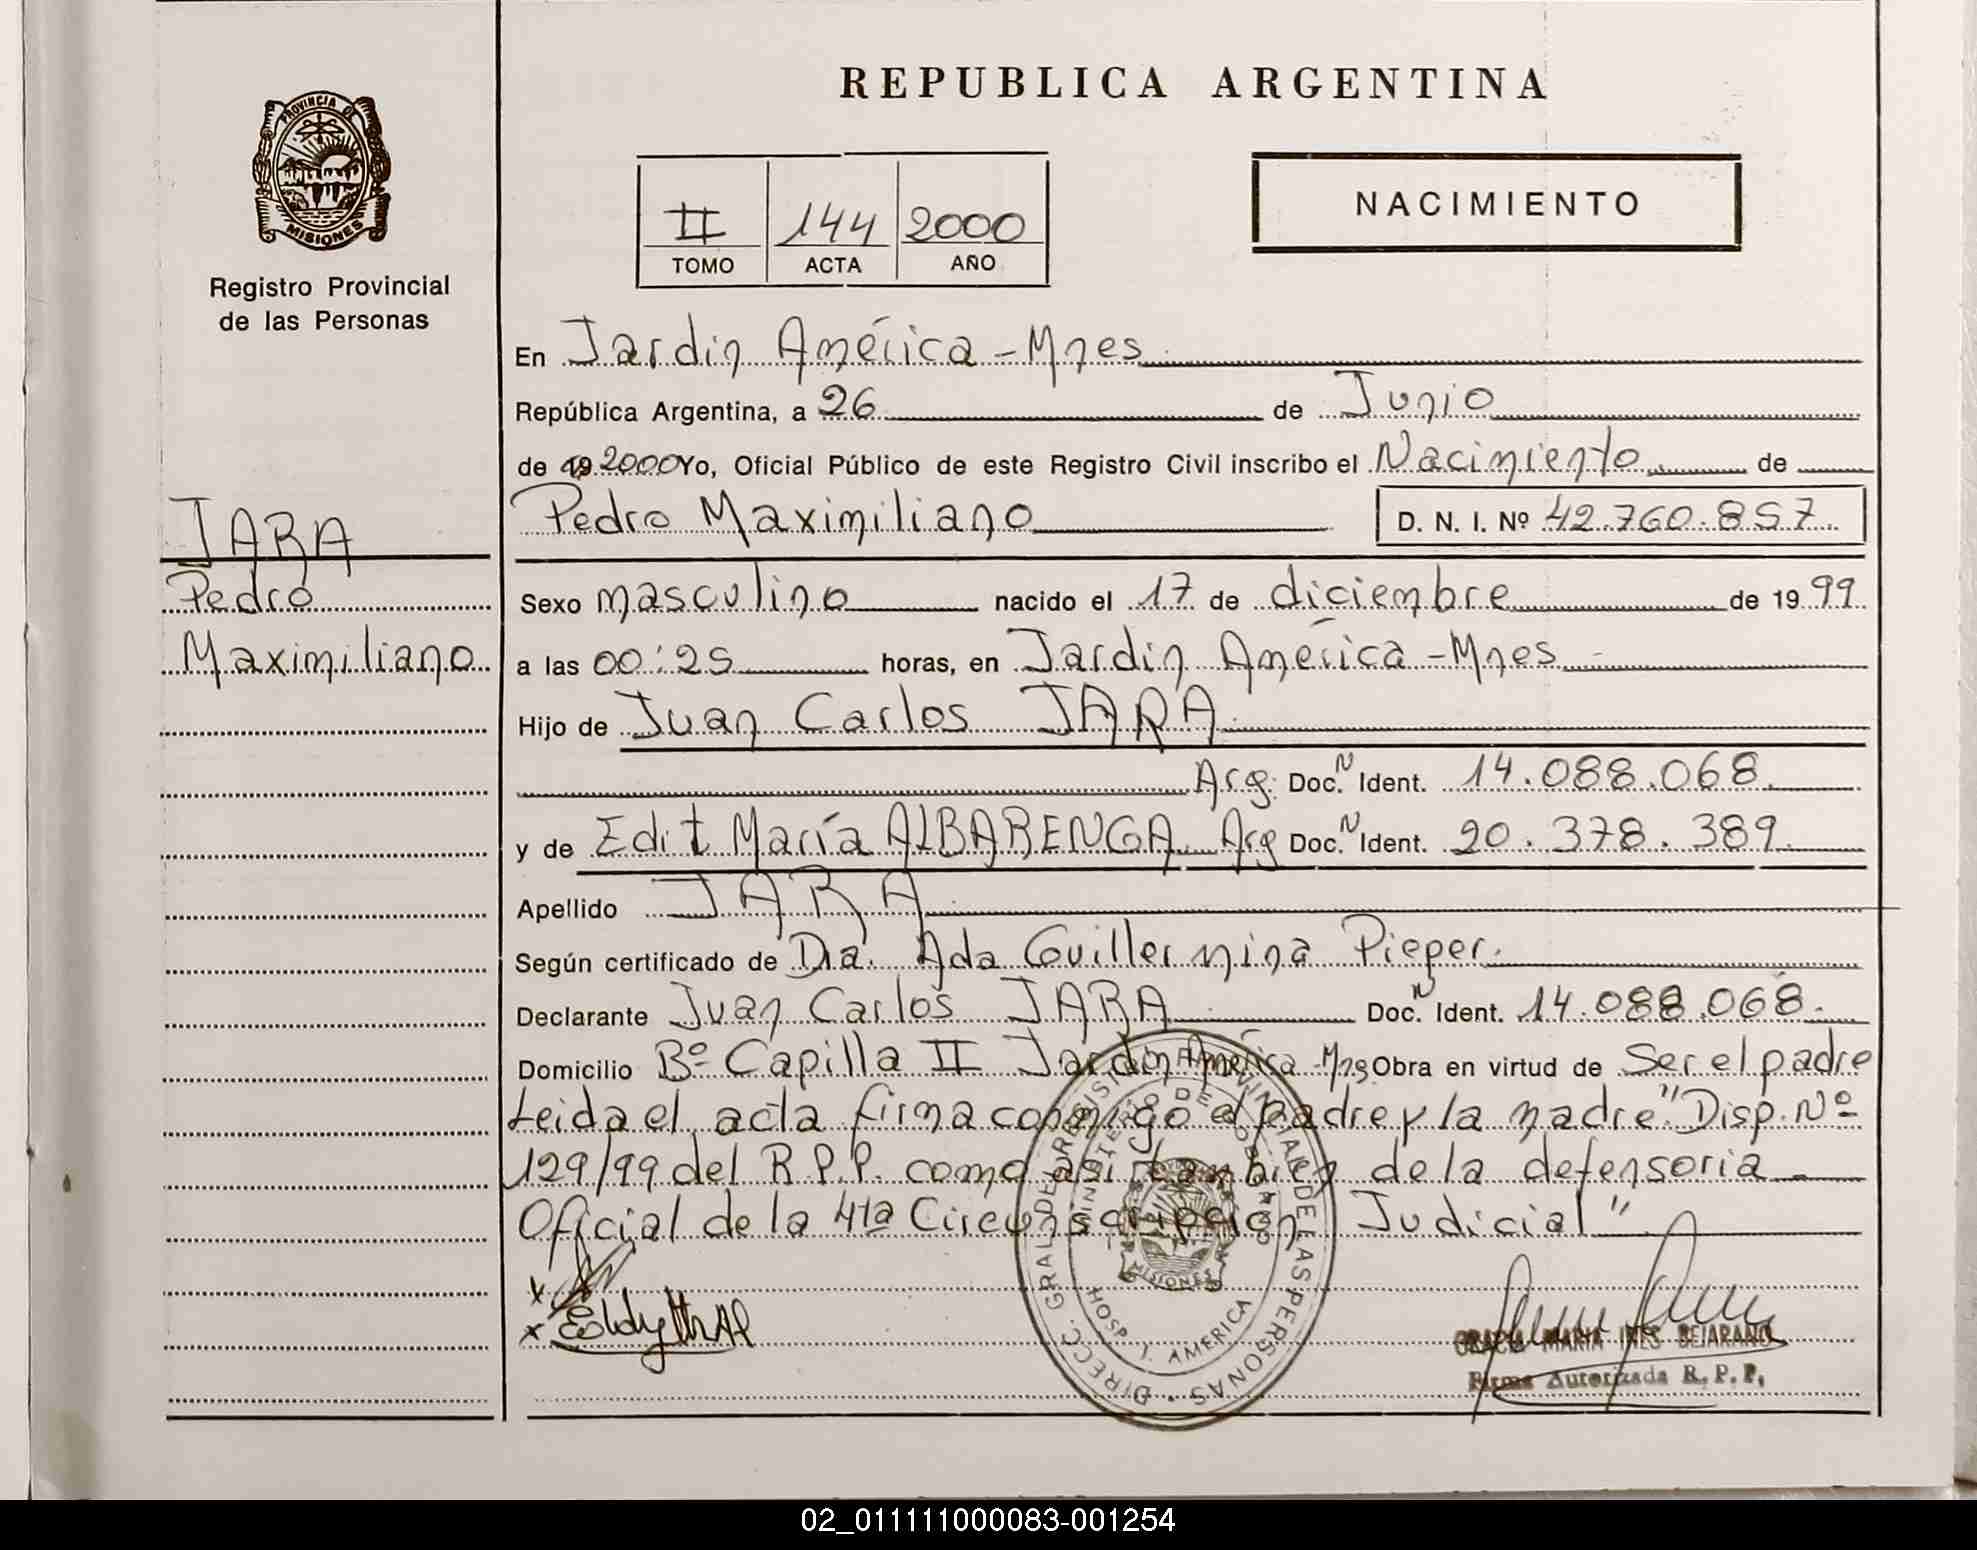 PROVINCIA DE
MISIONES
Registro Provincial
de las Personas
JARA
Pedro
Maximiliano
REPUBLICA ARGENTINA
II 144 2000
TOMO ACTA AÑO
NACIMIENTO
En Jardin América - Mnes
República Argentina, a 26 de Junio
de 19 2000 Yo, Oficial Público de este Registro Civil inscribo el Nacimiento de
Pedro Maximiliano D. N. I. Nº 42.760.857
Sexo masculino nacido el 17 de diciembre de 1999
a las 00:25 horas, en Jardin América - Mnes
Hijo de Juan Carlos JARA
Arg. Doc. N Ident. 14.088.068
y de Edit María ALBARENGA Arg Doc. N Ident. 20.378.389
Apellido JARA
Según certificado de Dra. Ada Guillermina Pieper.
Declarante Juan Carlos JARA Doc. N Ident. 14.088.068.
Domicilio Bº Capilla II Jardin América - Mns Obra en virtud de Ser el padre
Leida el acta firma conmigo el padre y la madre "Disp. Nº
129/99 del R.P.P. como asi tambien de la defensoria
Oficial de la 4ta Circunscripción Judicial"
DIRECC. GRAL. DEL REGISTRO PROVINCIAL DE LAS PERSONAS
MINISTERIO DE GOBIERNO
MISIONES
HOSP. J. AMERICA
GRACIA MARIA INES BEJARANO
Firma Autorizada R. P. P.
02_011111000083-001254